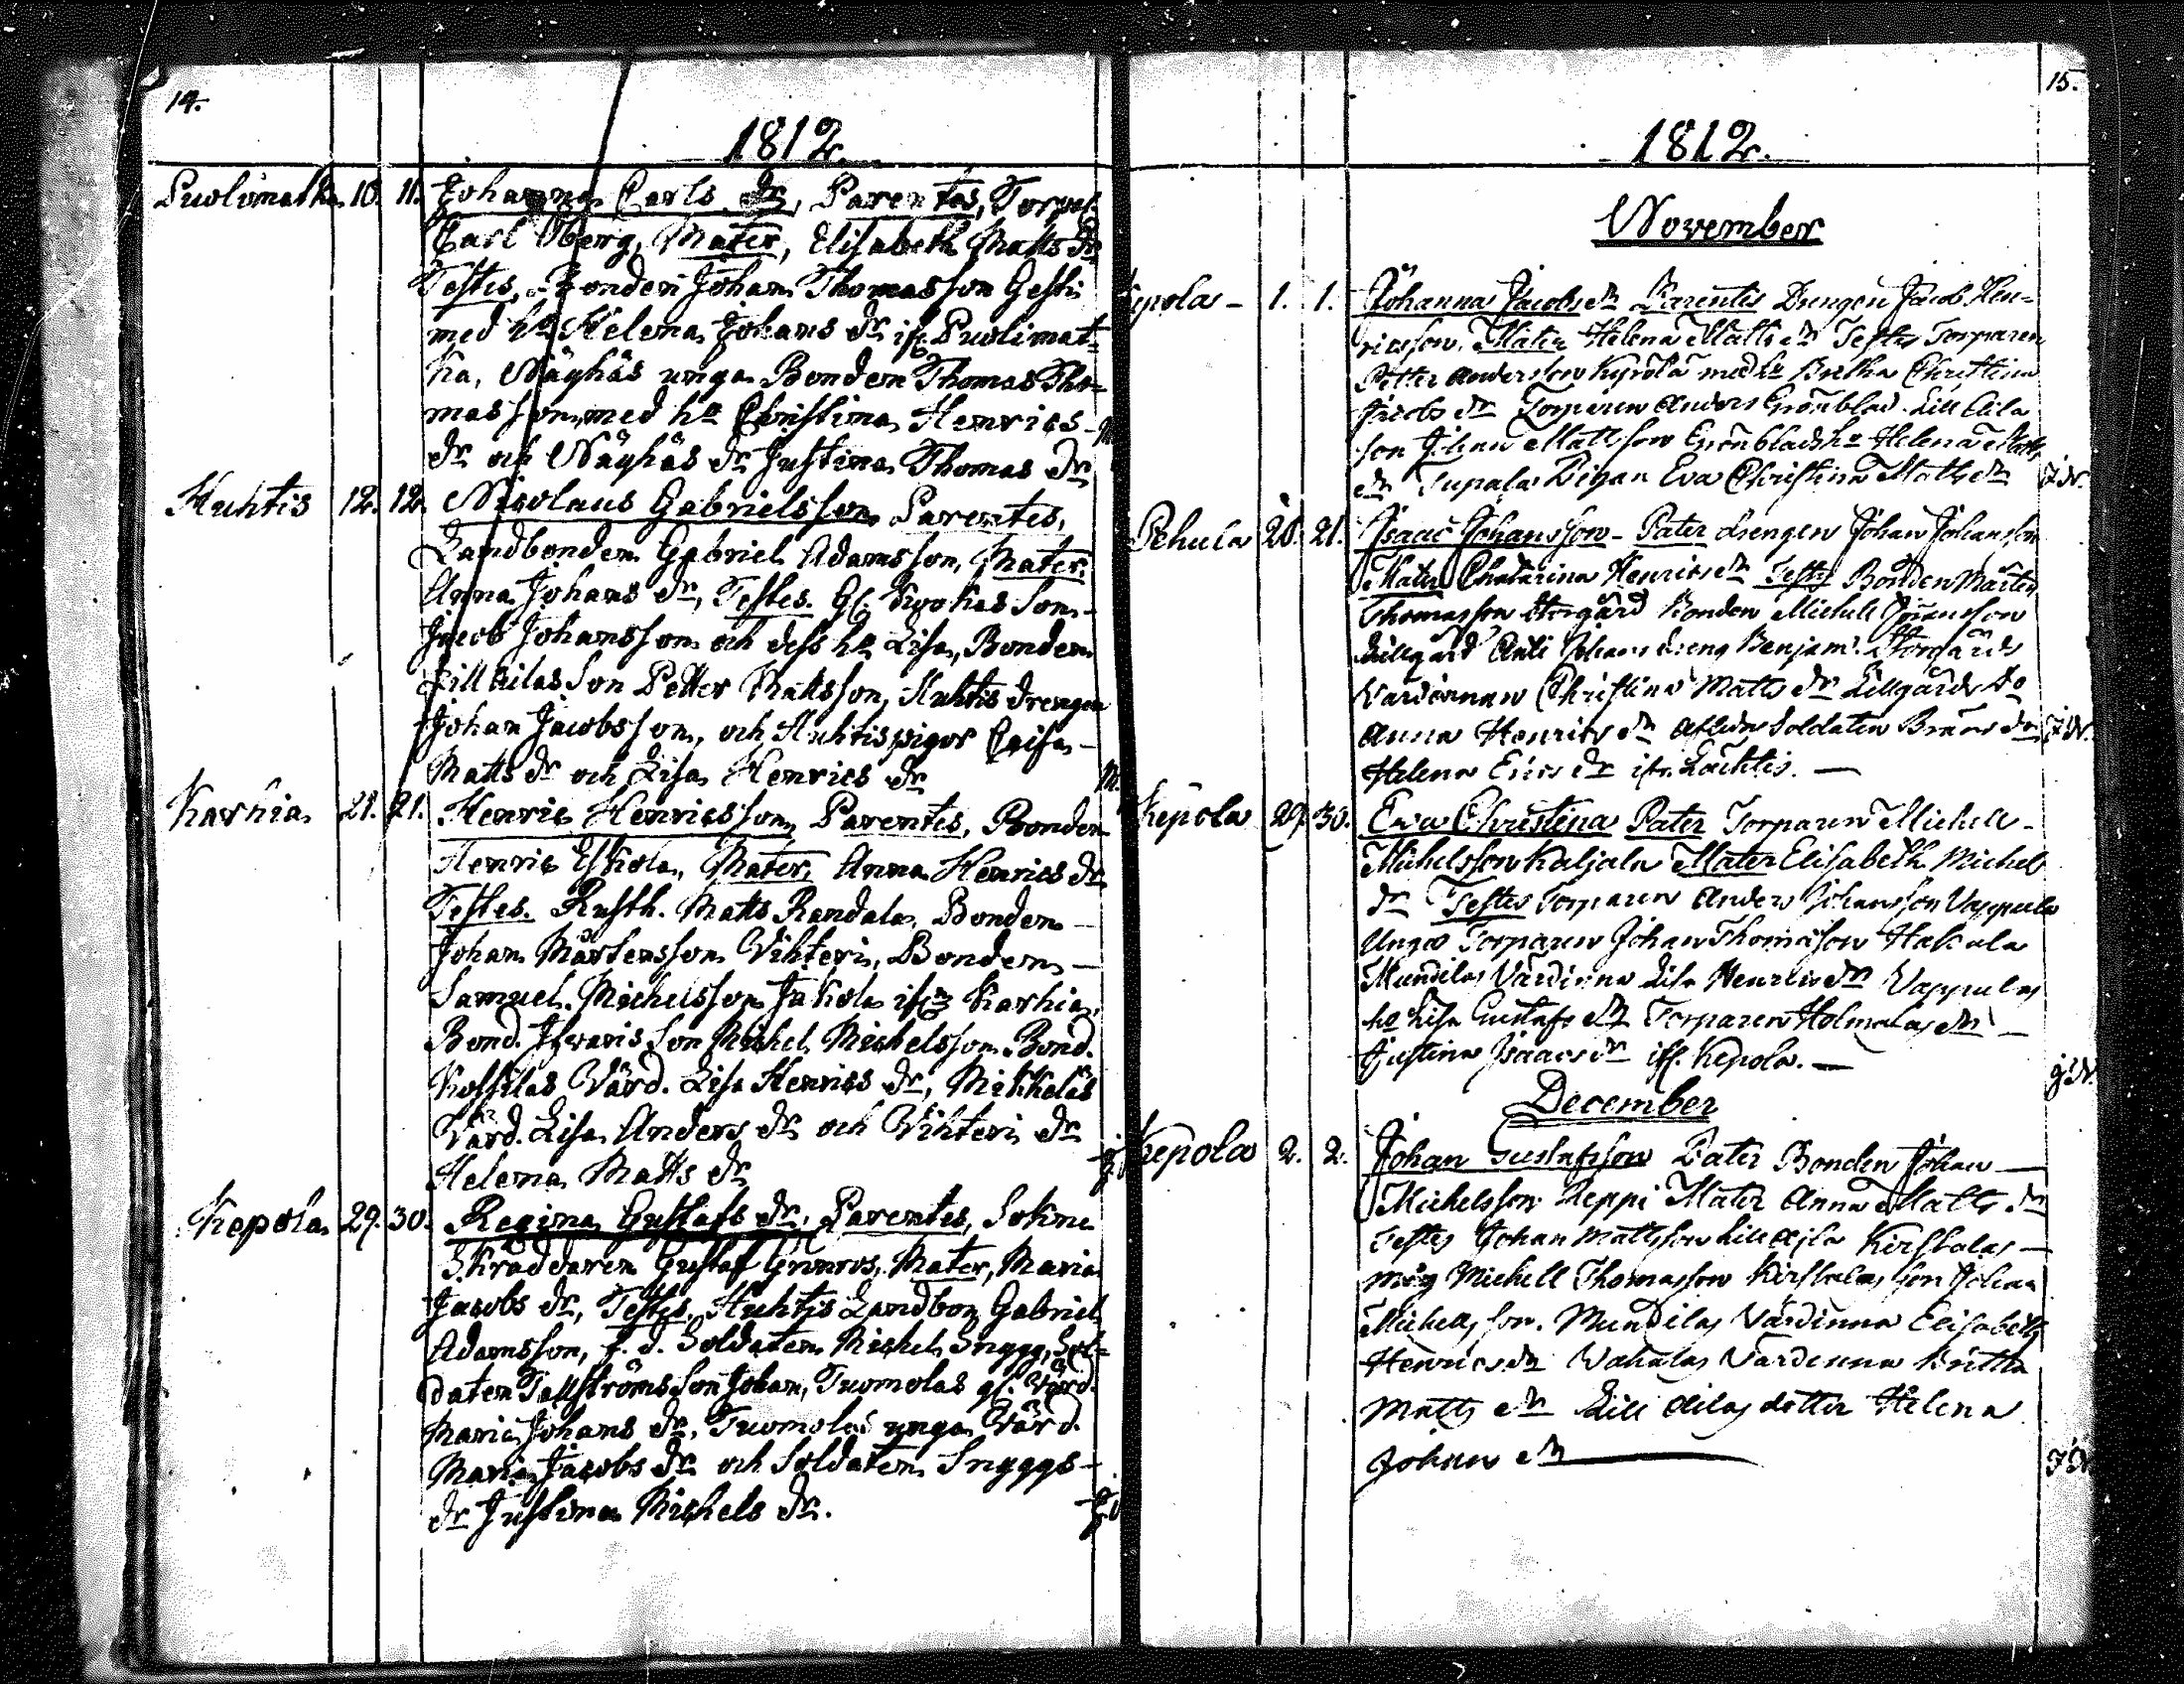 14.
1812.
Puolimatka 10. 11. Johanna Carls dr, Parentes, Torpar.
Carl Öberg, Mater, Elisabeth Matts dr
Testes, Bonden Johan Thomasson Gesti
med ha Helena Johans dr if. Puolimat=
ka, Näyhäs unga Bonden Thomas Tho=
masson, med ha Christina Henrics-
dr och Näyhäs dr Justina Thomas dr
Huhtis 12. 12. Nicolaus Gabrielsson, Parentes,
Landbonden Gabriel Adamsson, Mater,
Anna Johans dr, Testes. Gl. Son-
Jacob Johansson och dess ha Lisa, Bonden
Lill Eilas Son Petter Mattsson, Huhtis drengen
Johan Jacobsson, och Huhtis pigor Caisa
Matts dr och Lisa Henrics dr
Karhia 21. 21. Henric Henricsson, Parentes, Bonden
Henric Eskola, Mater, Anna Henrics dr
Testes. Rusth. Matts Randala, Bonden
Johan Mårtensson Vihteri, Bonden
Samuel Michelsson Jakola Karhia,
Bond. Son Michel Michelsson, Bond.
Värd. Lisa Henrics dr, Mikkelas
Värd. Lisa Anders dr och Vihteri dr
Helena Matts dr
Kepola 29. 30. Regina Gustafs dr, Parentes, Sokne
Skräddaren Gustaf Grönroos, Mater, Maria
Jacobs dr, Testes, Huhtis Landbon Gabriel
Adamsson, f. d. Soldaten Michel Snygg, Sol=
daten Tallströms Son Johan, Tuomolas gl. Värd.
Maria Johans dr, Tuomolas unga Värd.
Maria Jacobs dr och Soldaten Snyggs
dr Justina Michels dr.
15.
1812.
November
Kepola - 1. 1. Johanna Jacobs dr Parentes Drengen Jacob Hen=
ricsson, Mater Helena Matts dr Testes Torparen
Petter Andersson med ha Britha Christina
Jacobs dr Torparen Anders Grönblad Lill Eila
Son Johan Mattsson Grönblads ha Helena Matts
dr Tupala Pigan Eva Christina Matts dr
Pehula 20. 21. Isaac Johansson - Pater drengen Johan Johansson
Mater Chatarina Henrics dr Testes Bonden Mårten
Thomasson Storgård Bonden Michell Göransson
Lillgård Anti Johans dreng Benjam. Storgårds
Värdinnan Christina Matts dr Lillgårds do
Anna Henrics dr Soldaten dr
Helena Erics dr
Kepola 29. 30. Eva Christina Pater Torparen Michell
Michelsson Kaljala Mater Elisabeth Michels
dr Testes Torparen Anders Johansson Vappula
Unga Torparen Johan Thomasson Hakala
Mundilas Värdinna Lisa Henrics dr Vappulas
ha Lisa Gustafs dr Torparen Holmalas dr
Justina Isaacs dr if. Kepola.
December
Kepola 2. 2. Johan Gustafsson Pater Bonden Johan
Michelsson Seppi Mater Anna Matts dr
Testes Johan Mattsson Lill Kirstalas
måg Michell Thomasson Kirstalas son Johan
Michellsson. Mundilas Värdinna Elisabeth
Henrics dr Värdinna Britta
Matts dr Lill Eilas dotter Helena
Johan dr